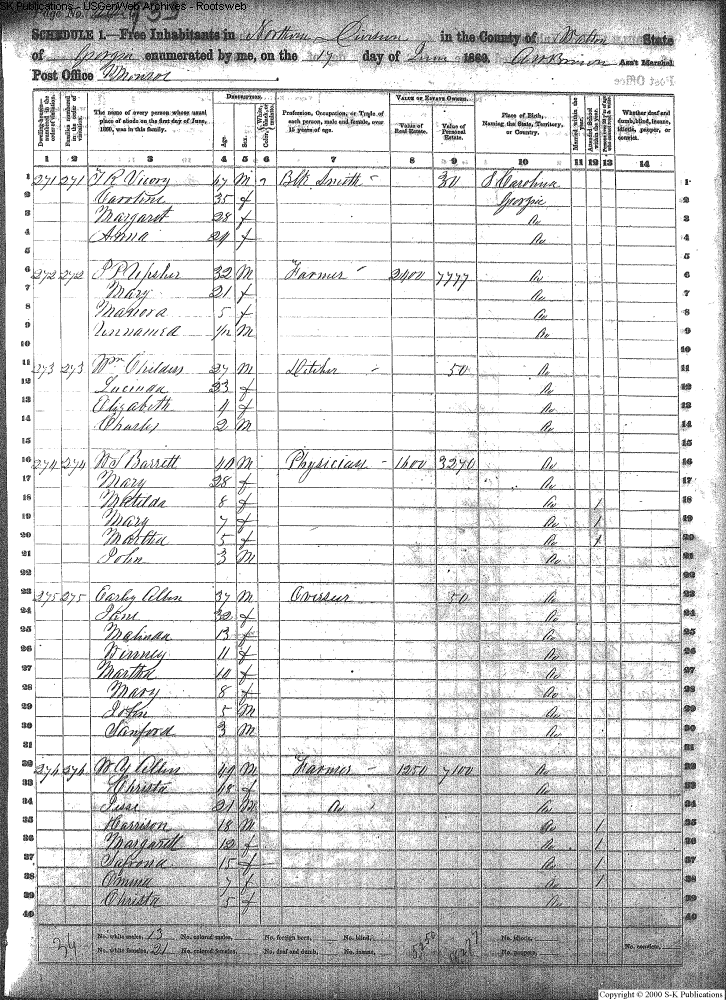 SK Publications - USGenWeb Archives - Rootsweb
Page No.
SCHEDULE 1.—Free Inhabitants in Northern Division in the County of Walton State
of Georgia enumerated by me, on the 17 day of June 1860. Ass't Marshal
Post Office Monroe
Dwelling-houses numbered in the order of visitation.
Families numbered in the order of visitation.
The name of every person whose usual place of abode on the first day of June, 1860, was in this family.
DESCRIPTION.
Age
Sex
Color, White, black, or mulatto.
Profession, Occupation, or Trade of each person, male and female, over 15 years of age.
VALUE OF ESTATE OWNED.
Value of Real Estate.
Value of Personal Estate.
Place of Birth, Naming the State, Territory, or Country.
Married within the year.
Attended School within the year.
Whether deaf and dumb, blind, insane, idiotic, pauper, or convict.
1 2 3 4 5 6 7 8 9 10 11 12 13 14
1 271 271 Vicory 47 M Blk Smith 30 S Carolina 1
2 Caroline 35 f Georgia 2
3 Margaret 28 f Do 3
4 Anna 24 f Do 4
5 5
6 272 272 32 M Farmer 2400 7777 Do 6
7 Mary 21 f Do 7
8 5 f Do 8
9 Unnamed M Do 9
10 10
11 273 273 Wm Childers 27 M Ditcher 50 Do 11
12 Lucinda 23 f Do 12
13 Elizabeth 4 f Do 13
14 Charles 2 M Do 14
15 15
16 274 274 W S Barrett 40 M Physician 1600 3270 Do 16
17 Mary 28 f Do 17
18 Matilda 8 f Do 1 18
19 Mary 7 f Do 1 19
20 Martha 5 f Do 1 20
21 John 3 M Do 21
22 22
23 275 275 Allen 37 M Overseer 50 Do 23
24 Jane 32 f Do 24
25 Malinda 13 f Do 25
26 Winney 11 f Do 26
27 Martha 10 f Do 27
28 Mary 8 f Do 28
29 John 5 M Do 29
30 Sanford 3 M Do 30
31 31
32 276 276 Allen 49 M Farmer 1250 7100 Do 32
33 Christa 48 f Do 33
34 Jesse 21 M Do Do 34
35 Harrison 18 M Do 1 35
36 Margarett 12 f Do 1 36
37 15 f Do 1 37
38 Emma 7 f Do 1 38
39 Christa 5 f Do 39
40 40
34 No. white males, 13 No. colored males, No. foreign born, No. blind, 5250 18277 No. idiotic, No. convicts,
No. white females, 21 No. colored females, No. deaf and dumb, No. insane, No. paupers,
Copyright © 2000 S-K Publications